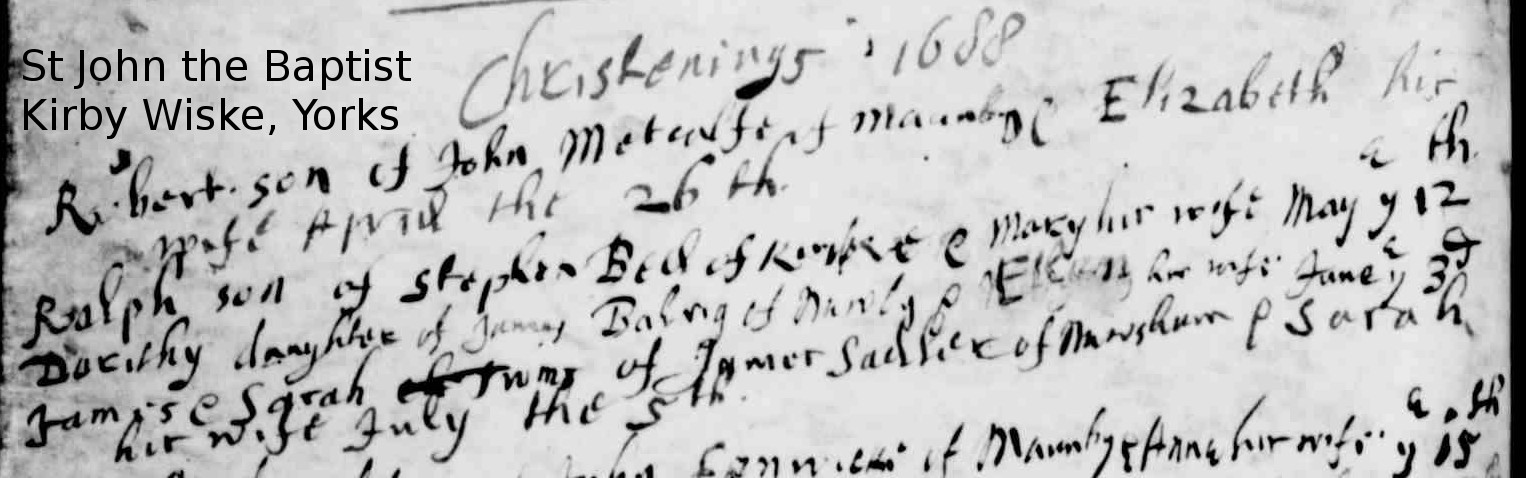 St John the Baptist
Kirby Wiske, Yorks
Christenings 1688
Robert son of John Metcalfe of Maunby & Elizabeth his
wife April the 26th.
Ralph son of Stephen Bell of & Mary his wife May ye 12th
Dorithy daughter of James of & his wife June ye 3d
James & Sarah twins of James Sadler of & Sarah
his wife July the 5th.
of Maunby & Anne his wife ye 15th